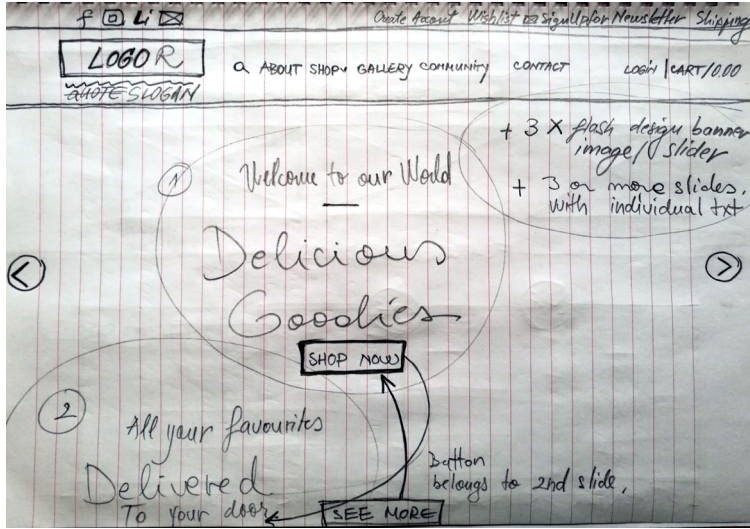 f Li Create Acount Wishlist SignUp for Newsletter Shipping
LOGO R
QUOTE SLOGAN
Q ABOUT SHOP GALLERY COMMUNITY CONTACT LOGIN | CART/0.00
+ 3 X flash design banner
image/slider
+ 3 or more slides.
with individual txt
1
Welcome to our World
Delicious
Goodies
< >
SHOP NOW
2
All your favourites
Delivered
To your door
Button
belongs to 2nd slide.
SEE MORE